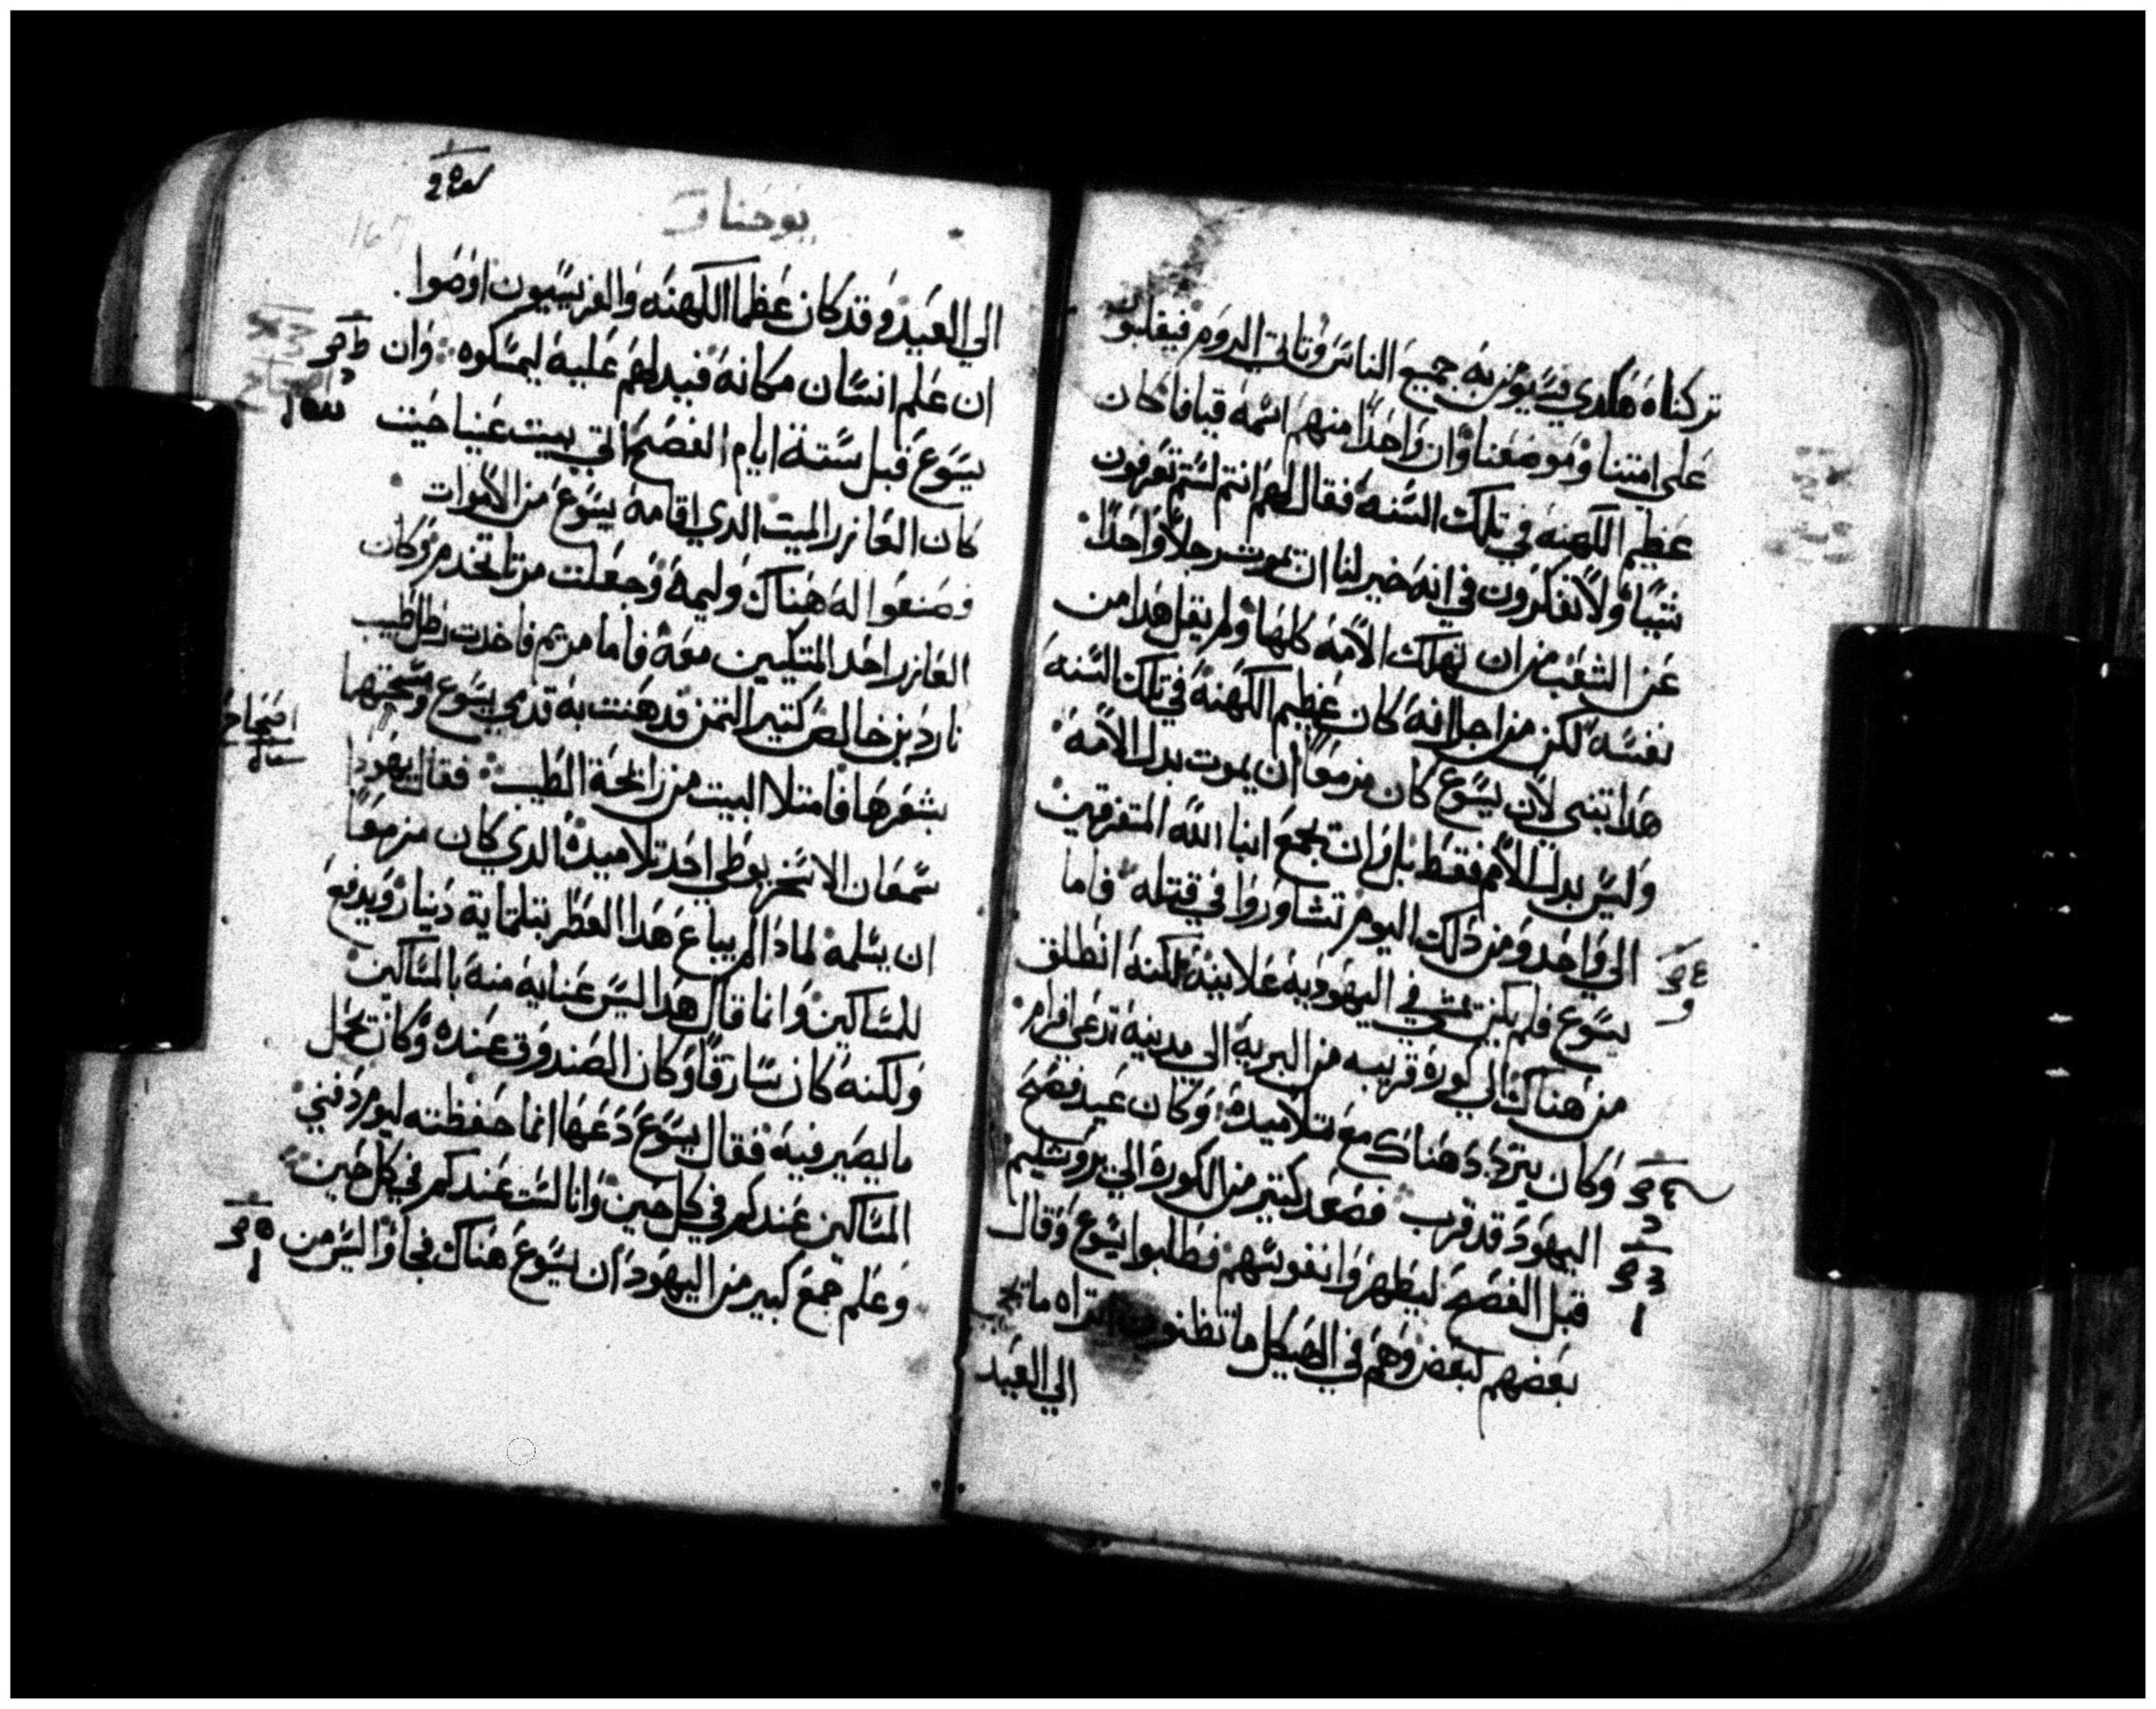 تركناه هكدي فسيومن به جميع الناس وتاتي الروم فيغلبون
علي امتنا وموضعنا وان واحدا منهم اسمه قيافا كان
عظيم الكهنه في تلك السنه فقال لهم انتم لستم تعرفون
شيا ولا تفكرون في انه خير لنا ان يموت رجلا واحدا
عن الشعب من ان تهلك الامه كلها ولم يقل هدا من
نفسه لكن من اجل انه كان عظيم الكهنة في تلك السنه
هدا تنبي لان يسوع كان مزمعا ان يموت بدل الامه
وليس بدل الامم فقط بل وان يجمع ابنا الله المتفرقين
الي واحد ومن دلك اليوم تشاوروا في قتله فاما
يسوع فلم يكن يمشي في اليهودية علانية لكنه انطلق
من هناك الي كورة قريبه من البرية الي مدينة تدعي افرام
وكان يتردد هناك مع تلاميده وكان عيد فصح
اليهود قد قرب فصعد كتير من الكورة الي يروشليم
قبل الفصح ليطهروا نفوسهم فطلبوا يسوع وقال
بعضهم لبعض وهم في الهيكل ما تظنون اتراه ما يجي
الي العيد
يوحنا
الي العيد وقد كان عظما الكهنه والفريسيون اوصوا
ان علم انسان مكانه فيدلهم عليه ليمسكوه وان
يسوع قبل ستة ايام الفصح اتي بيت عنيا حيت
كان العازر الميت الدي اقامه يسوع من الاموات
فصنعوا له هناك وليمة وجعلت مرتا تخدم وكان
العازر احد المتكيين معه فاما مريم فاخدت رطل طيب
ناردين خالص كتير التمن فدهنت به قدمي يسوع ومسحتهما
بشعرها فامتلا البيت من رايحة الطيب فقال يهودا
سمعان الاسخريوطي احد تلاميده الدي كان مزمعا
ان يسلمه لمادا لم يباع هدا العطر بتلتماية دينار ويدفع
للمساكين وانما قال هدا ليس عناية منه بالمساكين
ولكنه كان سارقا وكان الصندوق عنده وكان يحمل
ما يصير فيه فقال يسوع دعها انما حفظته ليوم دفني
المساكين عندكم في كل حين وانا لست عندكم في كل حين
وعلم جمع كبير من اليهود ان يسوع هناك فجاوا ليس من
اصحاح